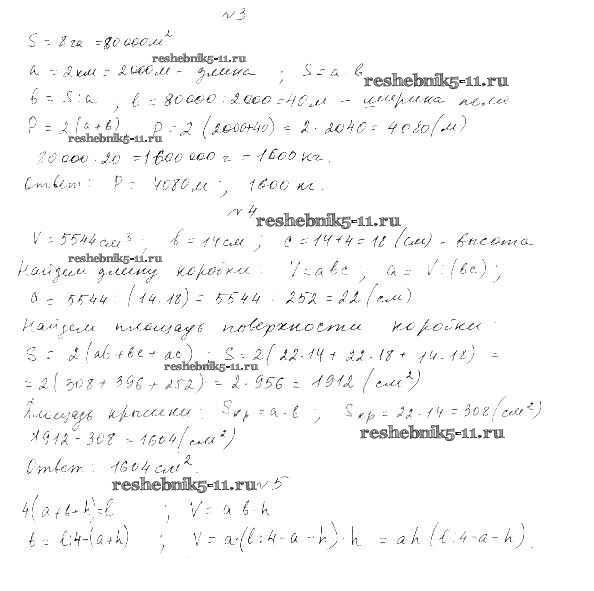 №3
S = 8 га = 80 000 м²
reshebnik5-11.ru
a = 2 км = 2000 м - длина ; S = a b
reshebnik5-11.ru
b = S : a , b = 80000 : 2000 = 40 м - ширина поля
P = 2(a+b) P = 2 (2000+40) = 2 · 2040 = 4080 (м)
reshebnik5-11.ru
80 000 · 20 = 1600 000 г = 1600 кг.
Ответ: P = 4080 м ; 1600 кг.
№4 reshebnik5-11.ru
V = 5544 см³ ; b = 14 см ; c = 14+4 = 18 (см) - высота
reshebnik5-11.ru
Найдем длину коробки: V = abc , a = V : (bc) ;
a = 5544 : (14·18) = 5544 : 252 = 22 (см)
Найдем площадь поверхности коробки:
S = 2(ab + bc + ac) ; S = 2( 22·14 + 22·18 + 14·18) =
reshebnik5-11.ru
= 2( 308 + 396 + 252) = 2·956 = 1912 (см²)
Площадь крышки: Sкр = a·b ; Sкр = 22·14 = 308 (см²)
1912 - 308 = 1604 (см²)
reshebnik5-11.ru
Ответ: 1604 см².
reshebnik5-11.ru №5
4(a+b+h) = l ; V = a b·h
b = l:4-(a+h) ; V = a·(l:4-a-h)·h = ah (l:4-a-h).